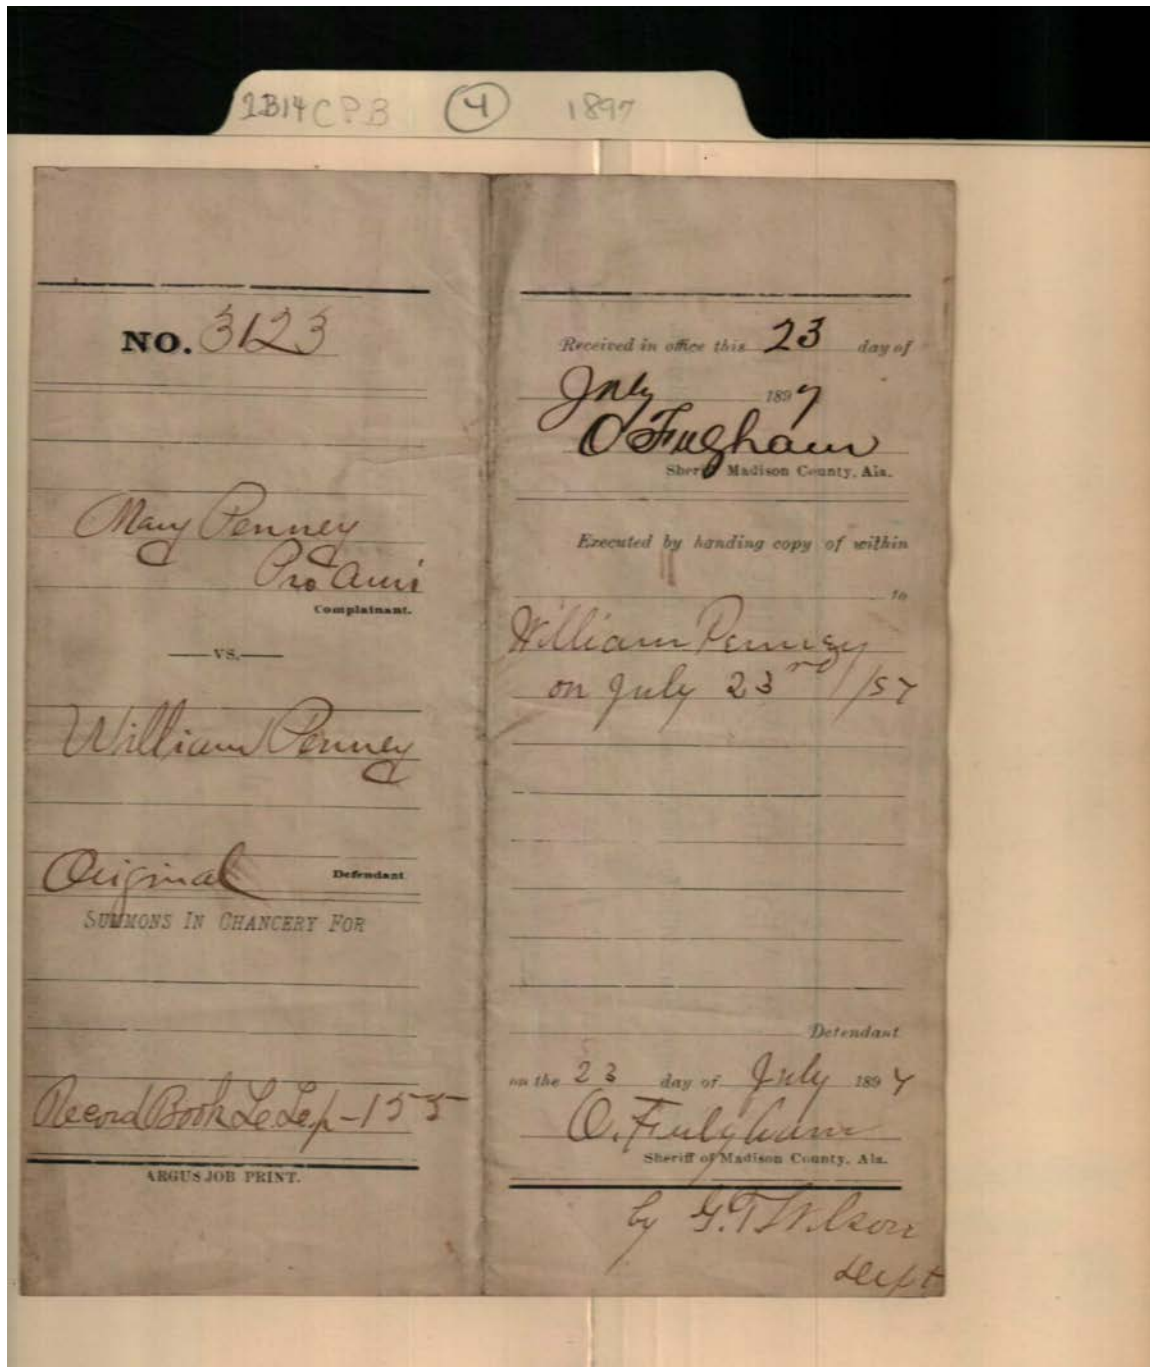 2B14CPB 4 1897
NO. 3123
Mary Penney
Pro Ami
Complainant.
VS.
William Penney
Original Defendant
SUMMONS IN CHANCERY FOR
Record Book p-155
ARGUS JOB PRINT.
Received in office this 23 day of
July 1897
O Fulgham
Sheriff Madison County, Ala.
Executed by handing copy of within
to
William Penney
on July 23rd /97
Defendant
on the 23 day of July 1897
O. Fulgham
Sheriff of Madison County, Ala.
by G.T. Wilson
Dept